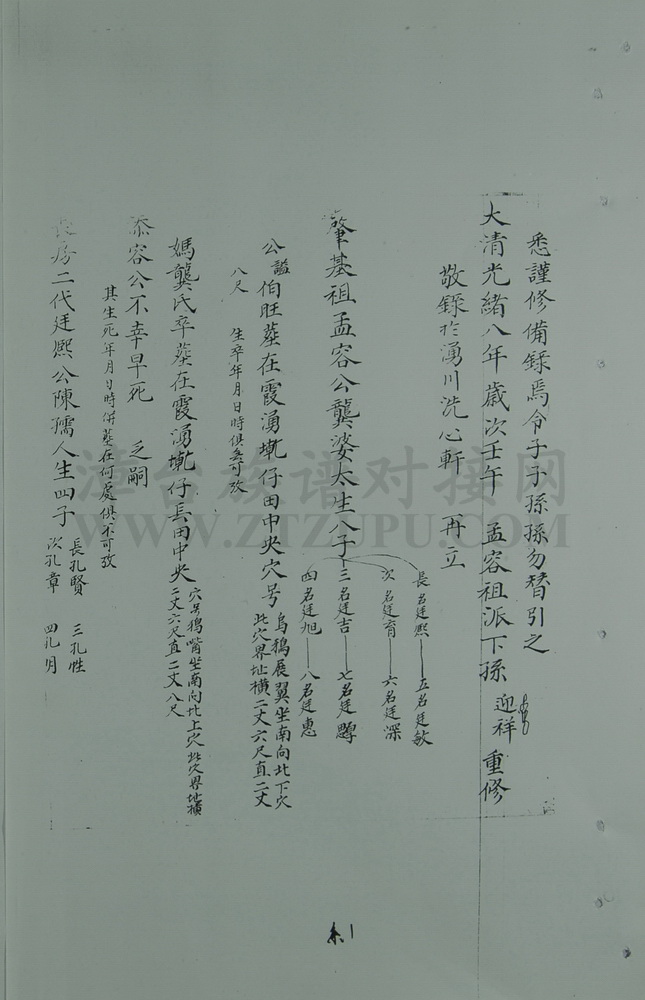 悉謹修備錄焉令子子孫孫勿替引之
大清光緒八年歲次壬午 孟容祖派下孫 迎祥 重修
敬錄於湧川洗心軒 再立
長名廷熙——五名廷敏
次名廷育——六名廷深
三名廷吉——七名廷
四名廷旭——八名廷惠
肇基祖孟容公龔婆太生八子
公謚伯旺塟在霞湧塹仔田中央穴号
烏鴉展翼坐南向北下穴
此穴界址橫二丈六尺直二丈
八尺 生卒年月日時俱無可攷
媽龔氏卒塟在霞湧塹仔長田中央
穴号鴉嘴坐南向北上穴此穴界址橫
二丈六尺直二丈八尺
添容公不幸早死 乏嗣
其生死年月日時併塟在何處俱不可攷
長房二代廷熙公陳孺人生四子
長孔賢 三孔性
次孔章 四孔明
漳台族谱对接网
WWW.ZTZUPU.COM
1